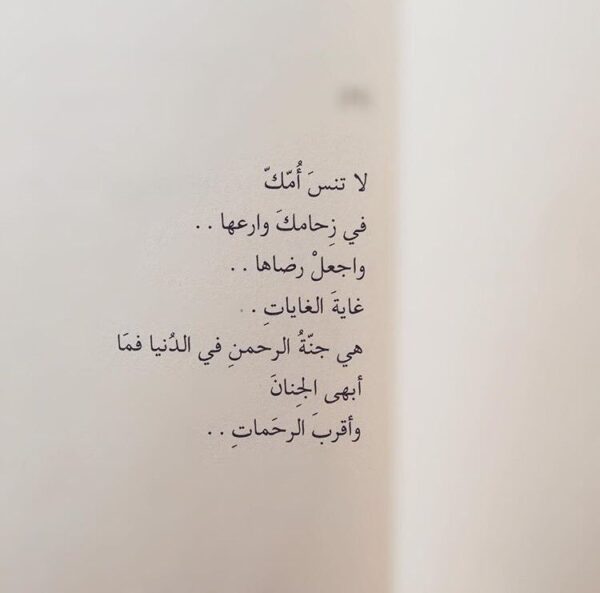 لا تنسَ أُمّكّ
في زِحامكَ وارعها . .
واجعلْ رضاها . .
غايةَ الغاياتِ . .
هي جنّةُ الرحمنِ في الدُنيا فمَا
أبهى الجِنانَ
وأقربَ الرحَماتِ . .